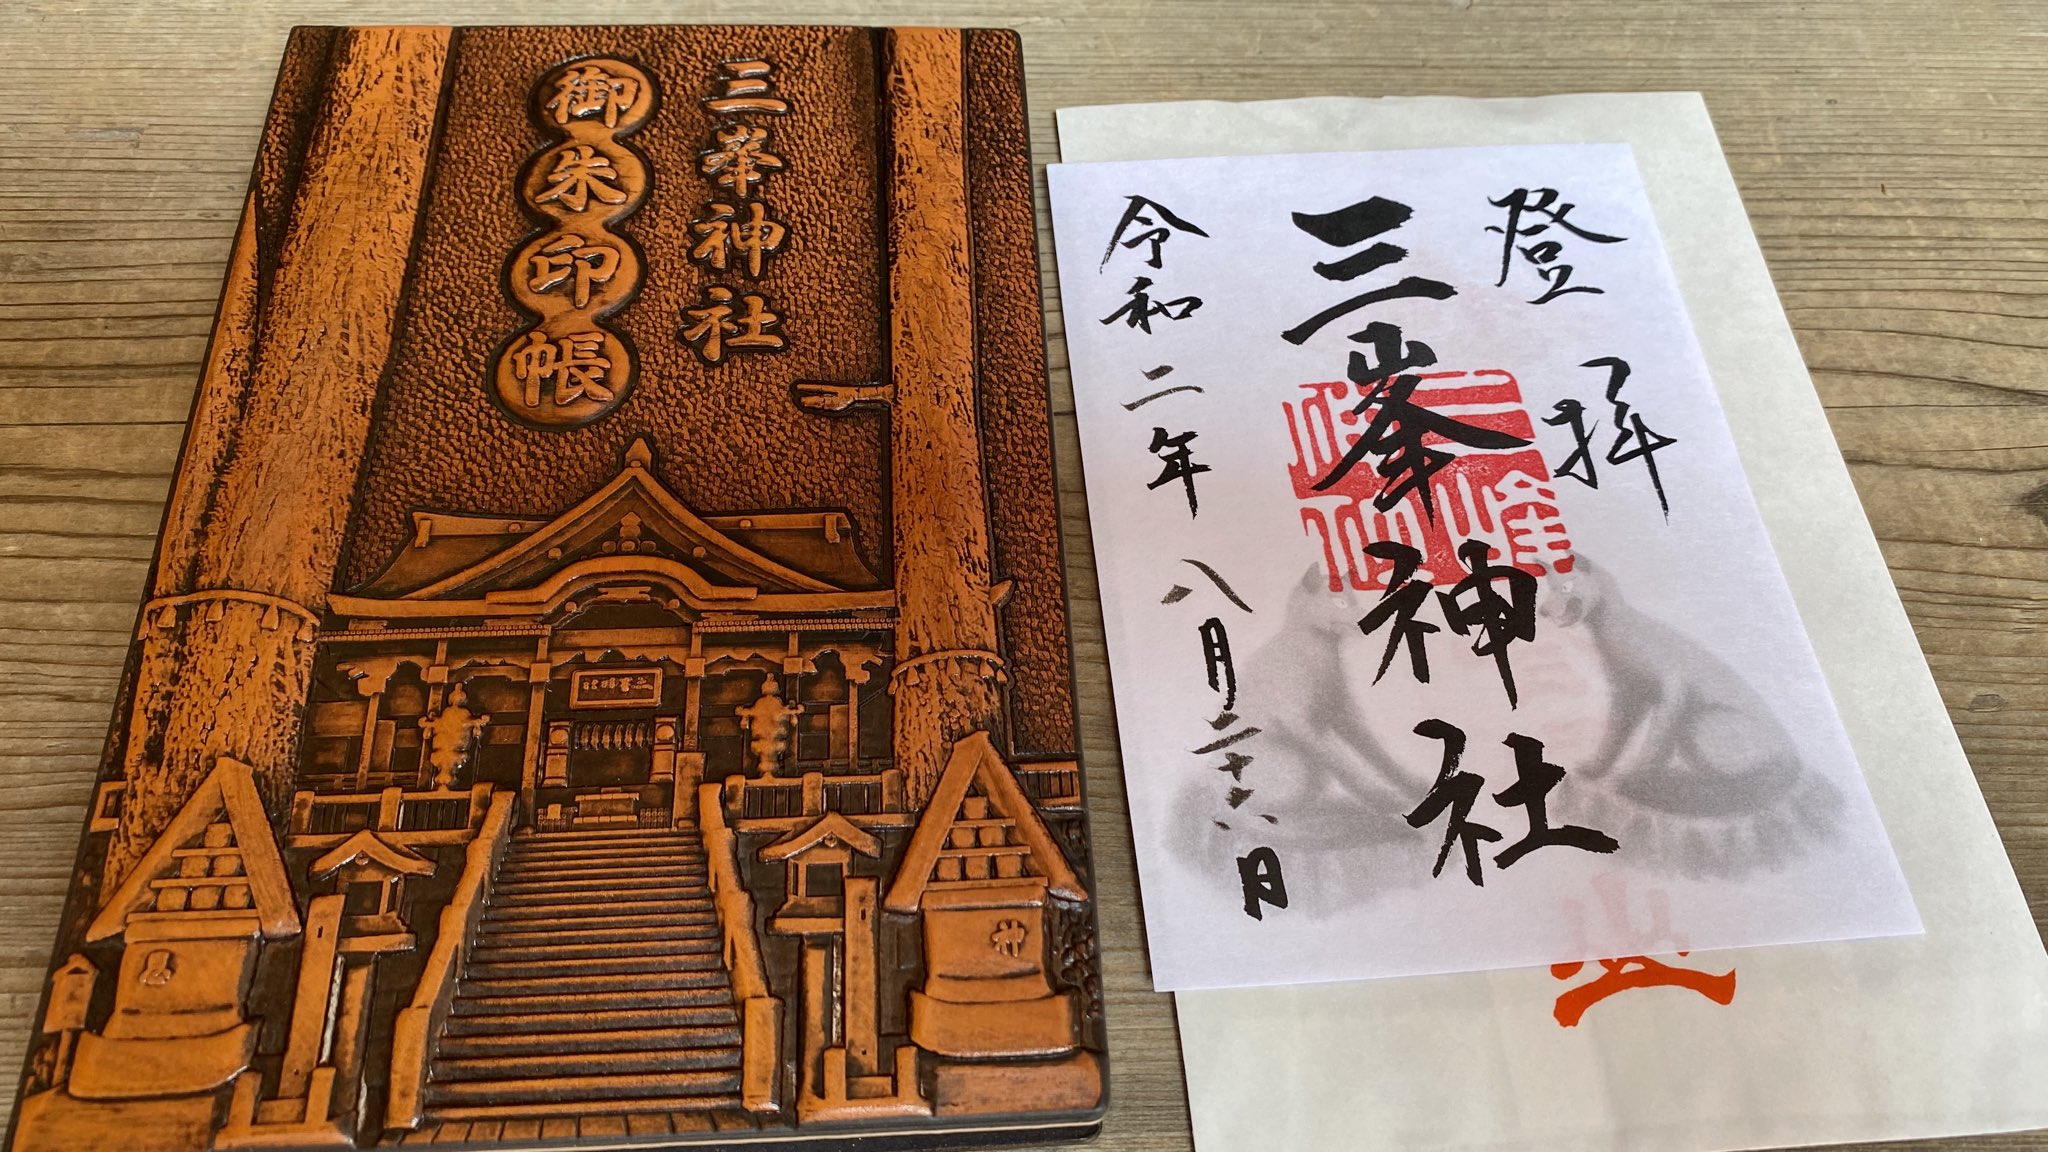 三峯神社
御朱印帳
神
登拝
三峯神社
令和二年八月二十八日